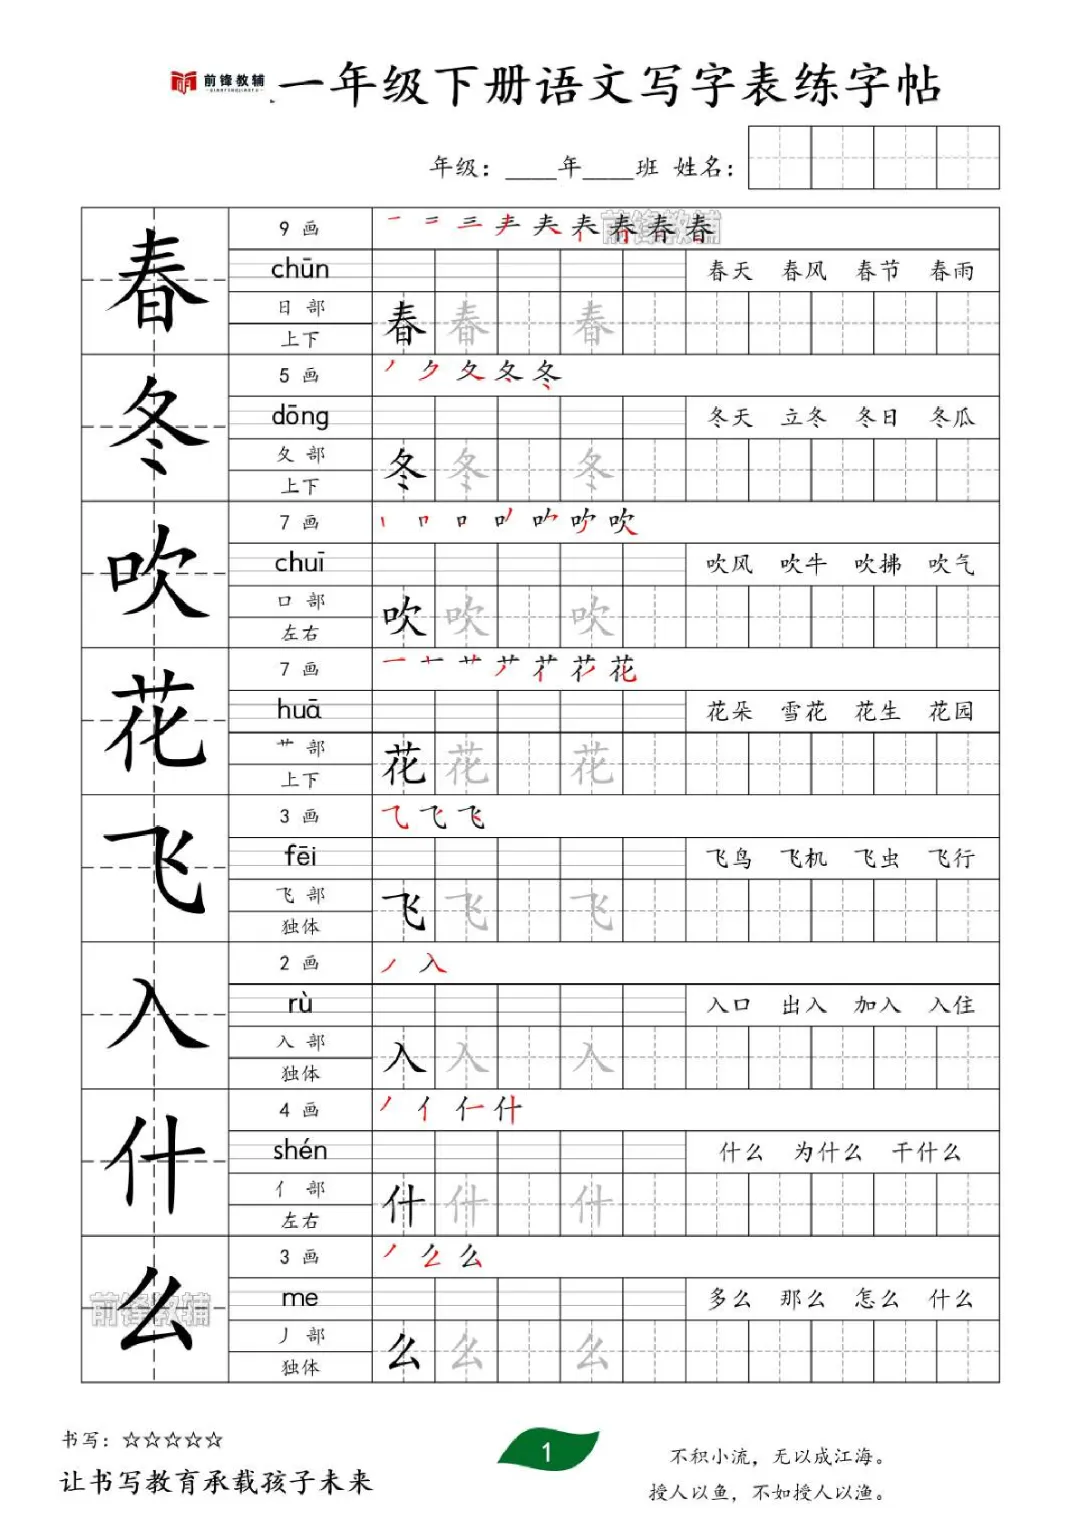 前锋教辅
QIANFENGJIAOFU
一年级下册语文写字表练字帖
年级：____年____班 姓名：
春
9 画
一 二 三 𡗗 春
前锋教辅
chūn
春天 春风 春节 春雨
日 部
上下
春 春 春
冬
5 画
丿 ク 夂 冬 冬
dōng
冬天 立冬 冬日 冬瓜
夂 部
上下
冬 冬 冬
吹
7 画
吹
chuī
吹风 吹牛 吹拂 吹气
口 部
左右
吹 吹 吹
花
7 画
花
huā
花朵 雪花 花生 花园
艹 部
上下
花 花 花
飞
3 画
乁 飞 飞
fēi
飞鸟 飞机 飞虫 飞行
飞 部
独体
飞 飞 飞
入
2 画
丿 入
rù
入口 出入 加入 入住
入 部
独体
入 入 入
什
4 画
丿 亻 什
shén
什么 为什么 干什么
亻 部
左右
什 什 什
么
前锋教辅
3 画
丿 么 么
me
多么 那么 怎么 什么
丿 部
独体
么 么 么
书写：☆☆☆☆☆
让书写教育承载孩子未来
1
不积小流，无以成江海。
授人以鱼，不如授人以渔。